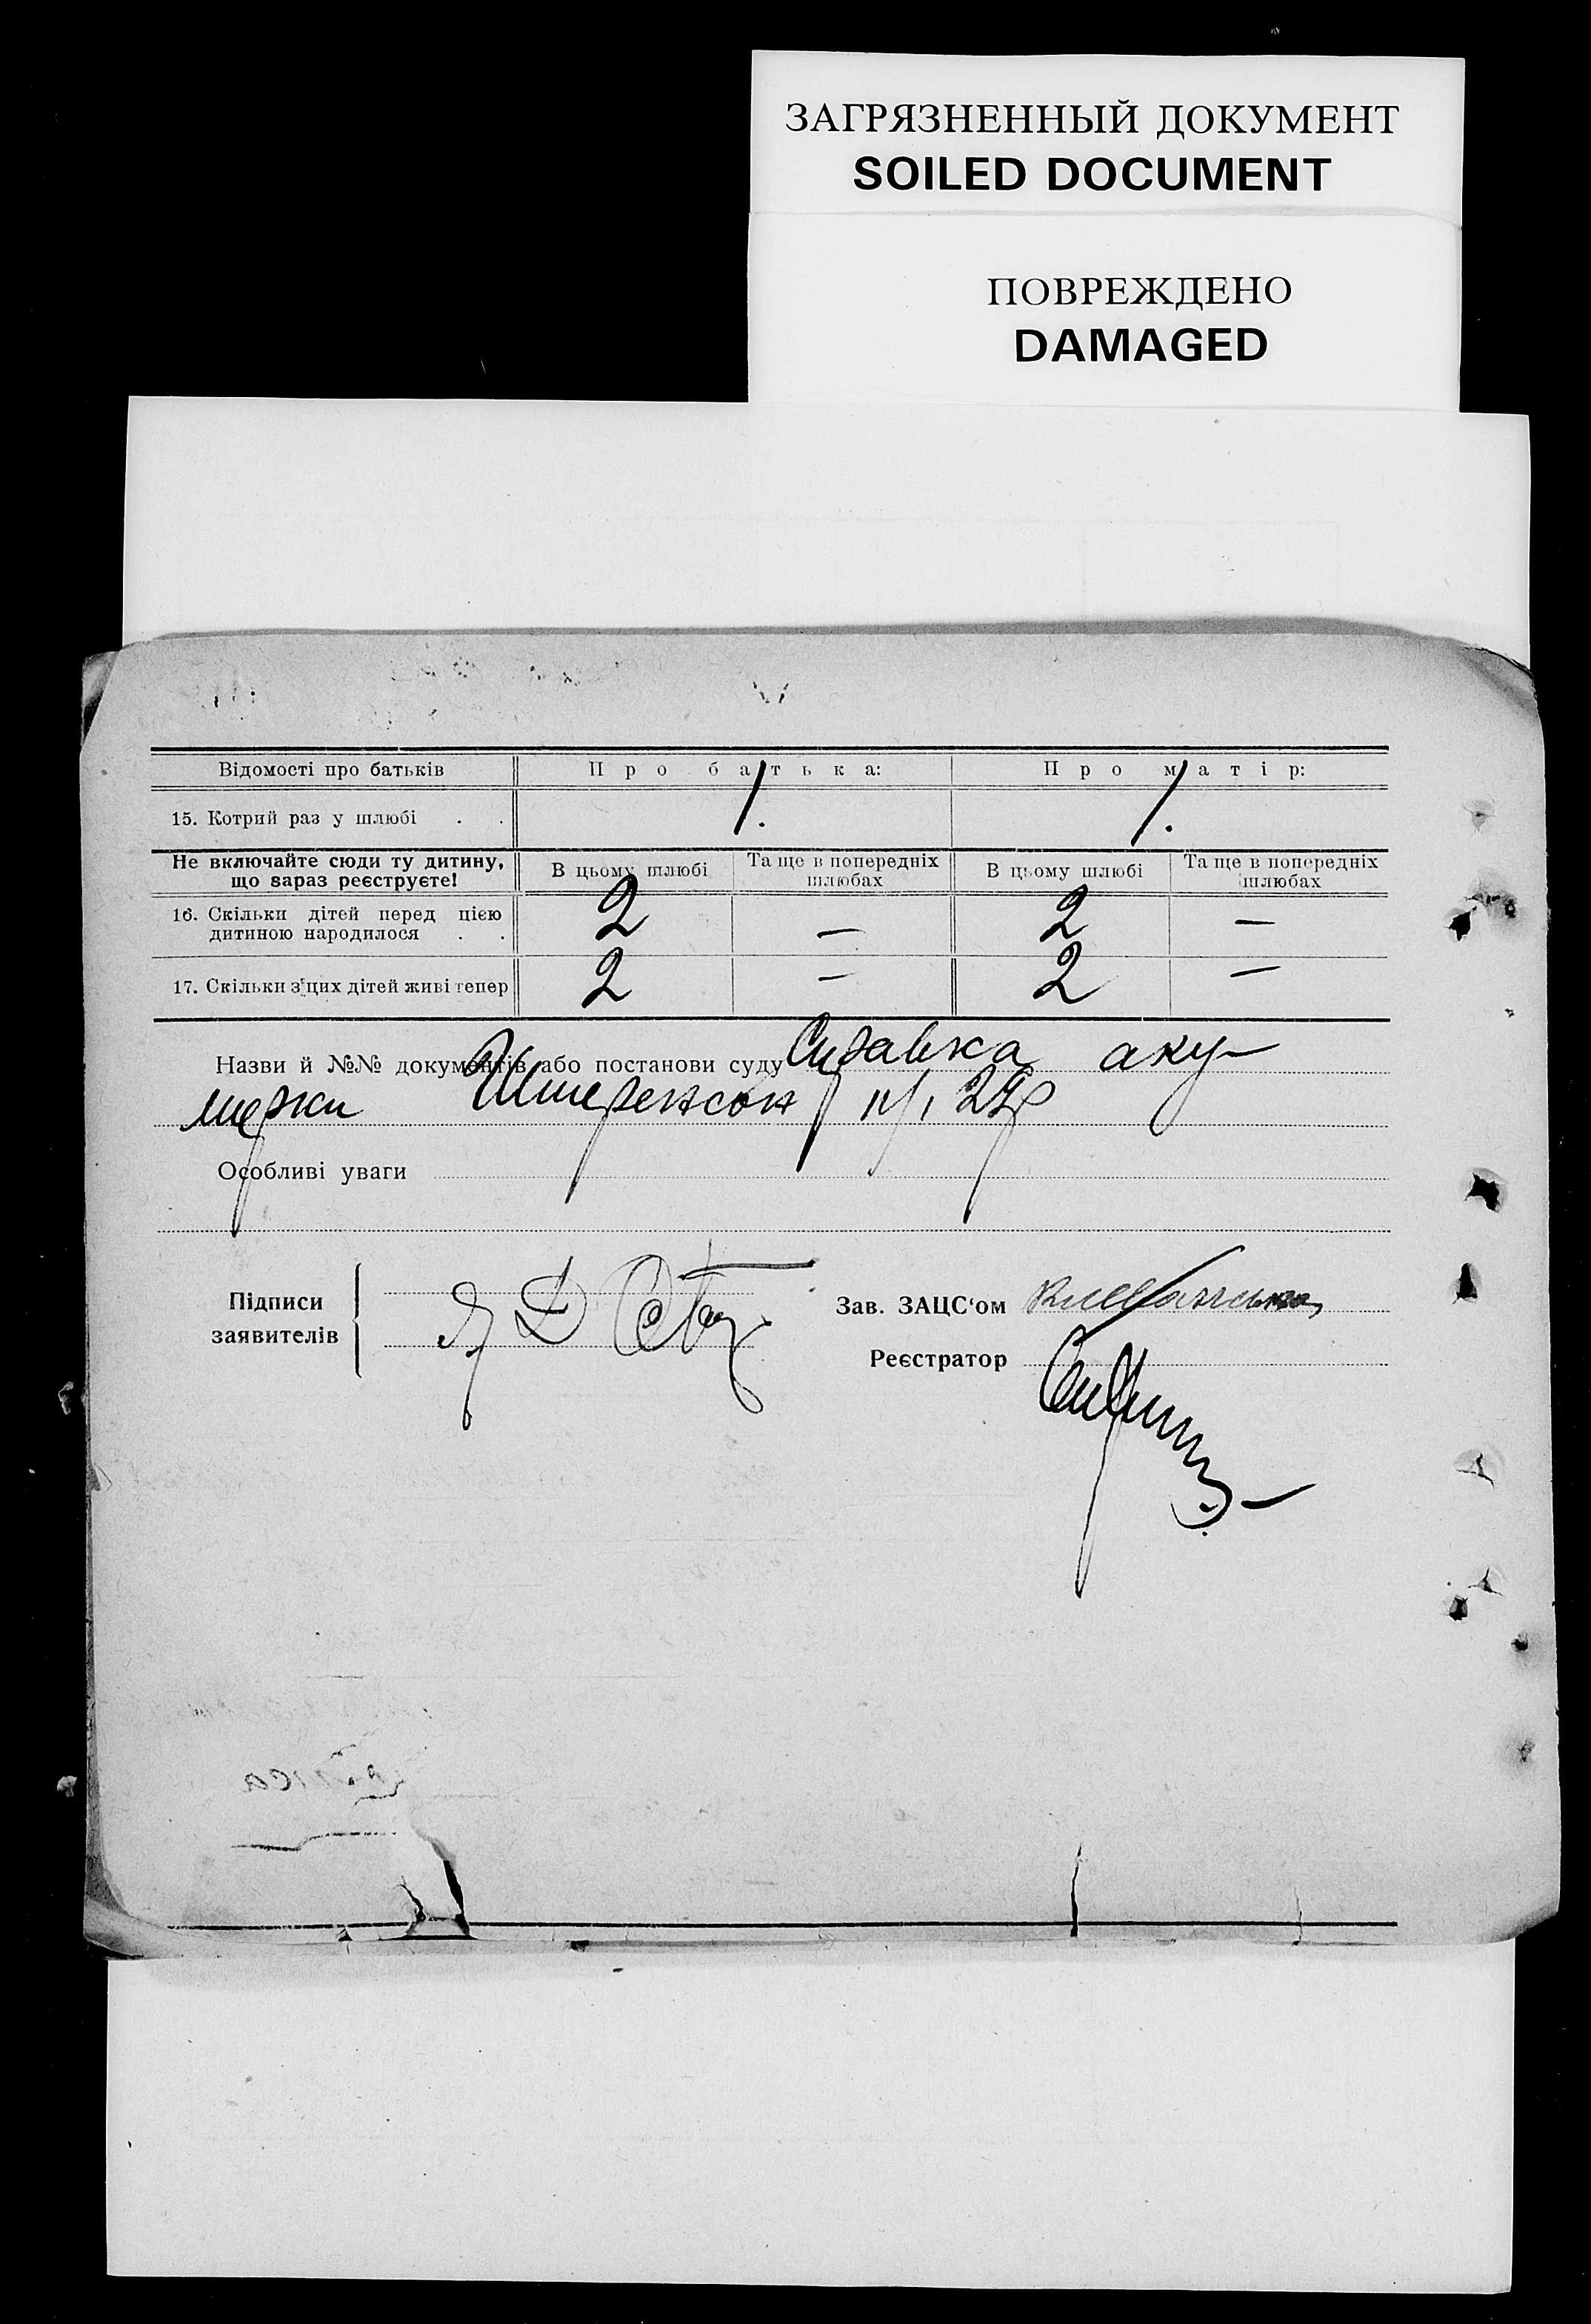 ЗАГРЯЗНЕННЫЙ ДОКУМЕНТ
SOILED DOCUMENT
ПОВРЕЖДЕНО
DAMAGED
Відомості про батьків Про батька: Про матір:
15. Котрий раз у шлюбі . . 1. 1.
Не включайте сюди ту дитину, що зараз реєструєте! В цьому шлюбі Та ще в попередніх шлюбах В цьому шлюбі Та ще в попередніх шлюбах
16. Скільки дітей перед цією дитиною народилося . . 2 — 2 —
17. Скільки з цих дітей живі тепер 2 — 2 —
Назви й №№ документів або постанови суду Справка аку-
шерки
Особливі уваги
Підписи
заявителів
Зав. ЗАЦС‘ом
Реєстратор